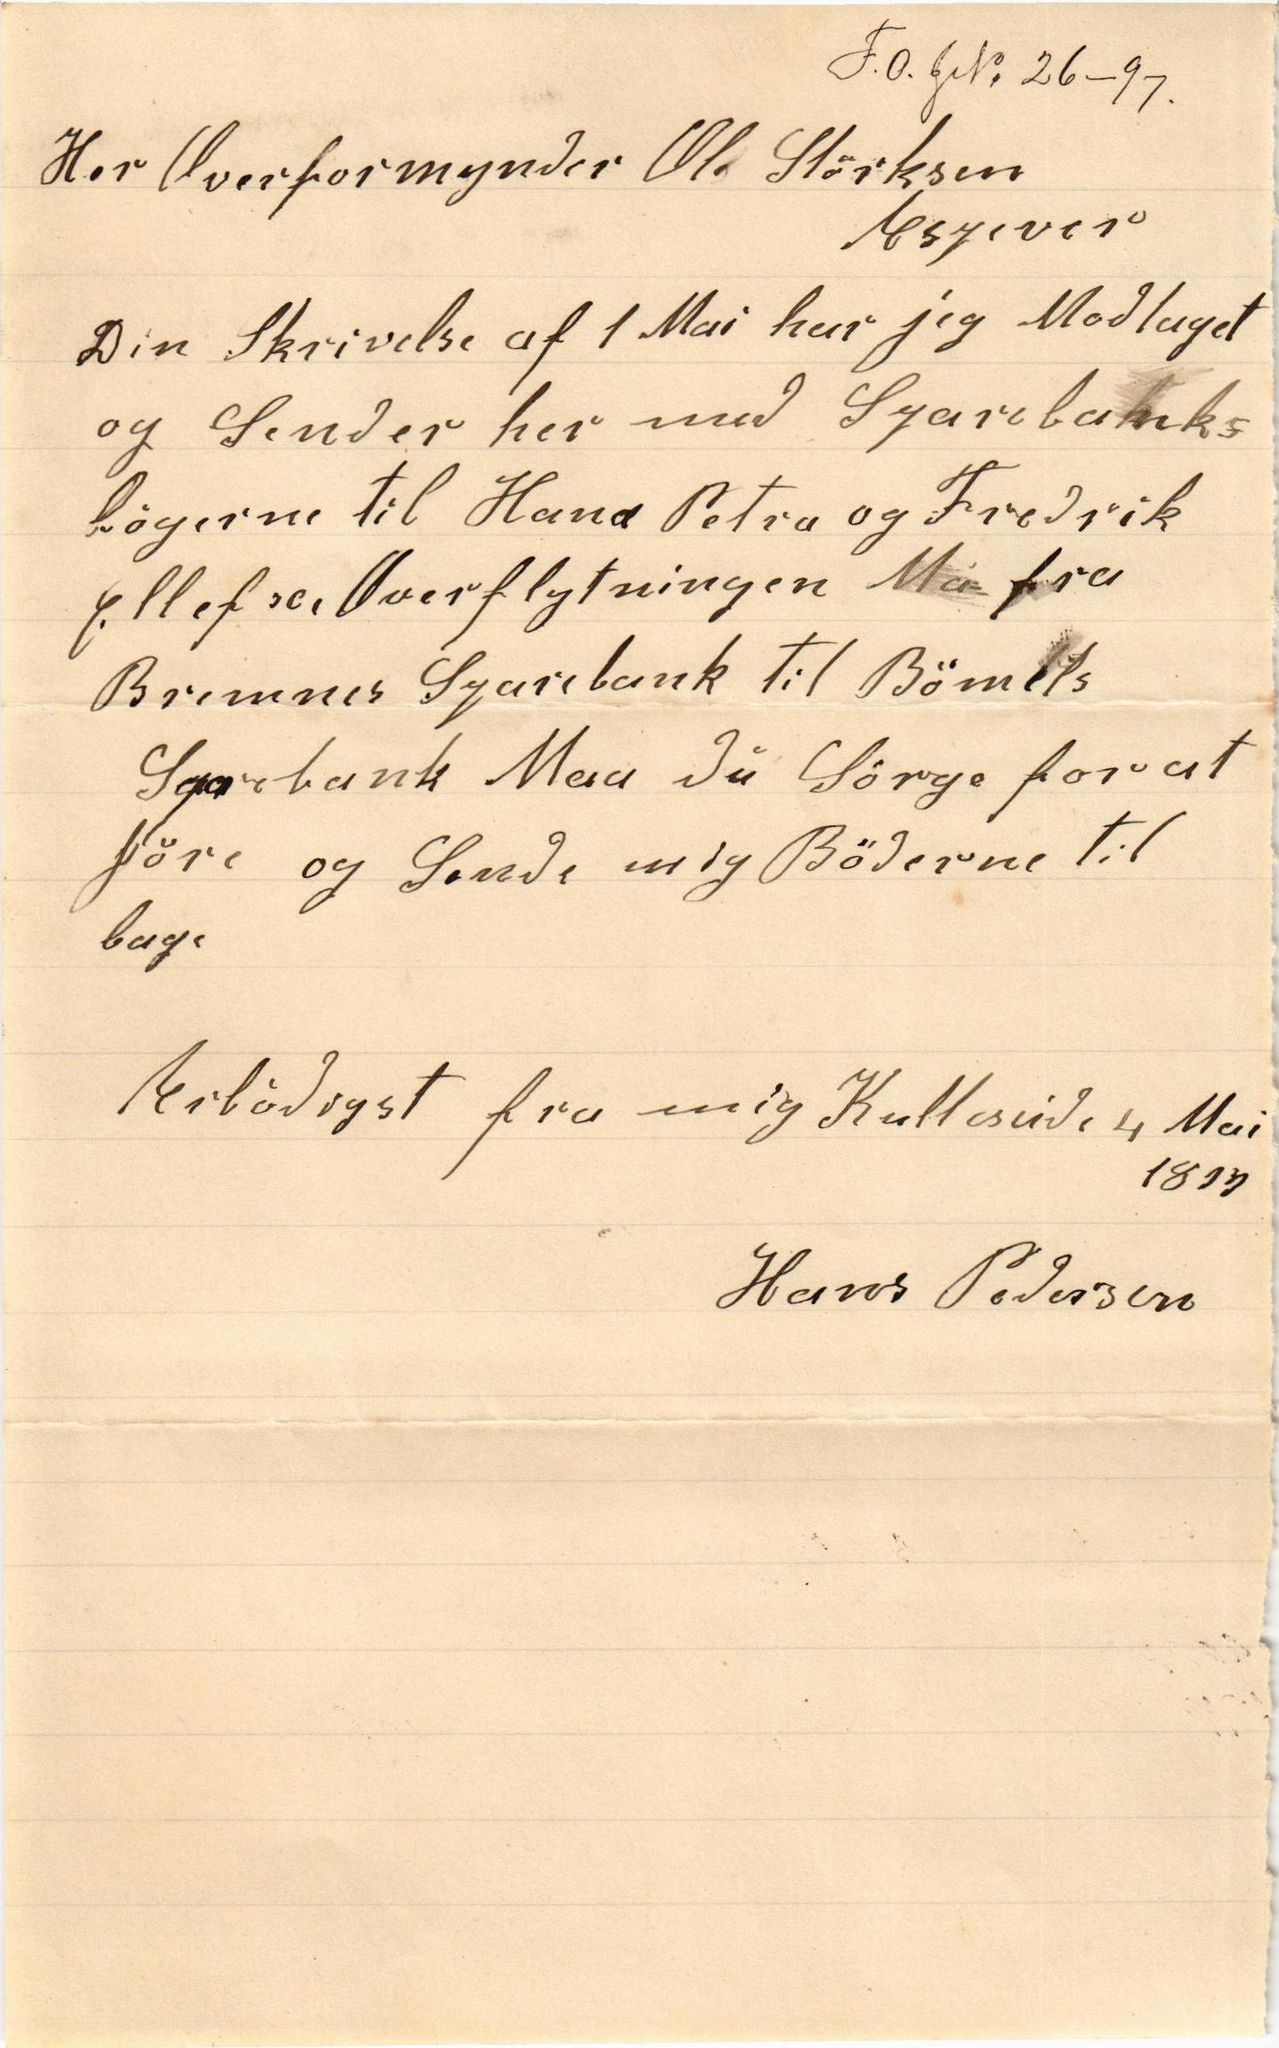 F.O. J.N. 26-97.
Her Overformynder Ole Störksen
Espever
Din Skrivelse af 1 Mai har jeg Modtaget
og Sender her med Sparebanks
bögerne til Hana Petra og Fredrik
Ellefsen Overflytningen fra
Bremnes Sparebank til Bömels
Sparebank Maa du Sörge for at
före og Sende mig Böderne til
bage
Erbödigst fra mig Kulleseide 4 Mai
Hans Pedersen